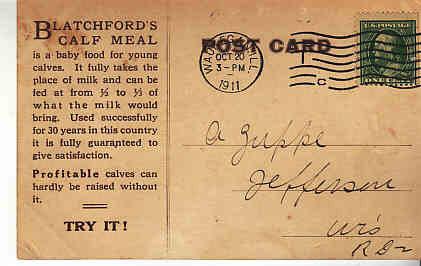 BLATCHFORD'S
CALF MEAL
is a baby food for young
calves. It fully takes the
place of milk and can be
fed at from ½ to ⅓ of
what the milk would
bring. Used successfully
for 30 years in this country
it is fully guaranteed to
give satisfaction.
Profitable calves can
hardly be raised without
it.
TRY IT!
POST CARD
WAUKEGAN, ILL.
OCT 20
3-PM
1911
C
U.S. POSTAGE
ONE CENT
A Zuppe
Jefferson
Wis
R D 2